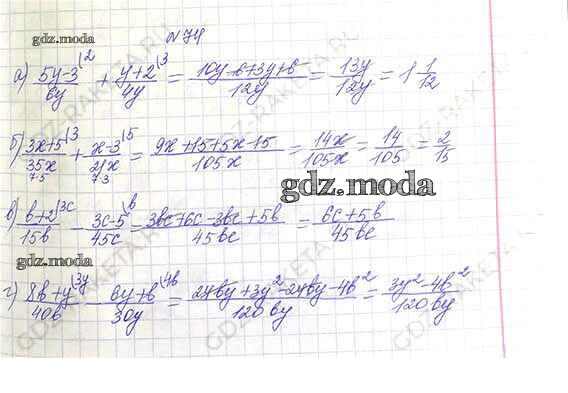 gdz.moda
№ 74
а) (5y-3)/6y \2 + (y+2)/4y \3 = (10y-6+3y+6)/12y = 13y/12y = 1 1/12
б) (3x+5)/35x \3 + (x-3)/21x \5 = (9x+15+5x-15)/105x = 14x/105x = 14/105 = 2/15
7·5 7·3
gdz.moda
gdz.moda
в) (b+2)/15b \3c - (3c-5)/45c \b = (3bc+6c-3bc+5b)/45bc = (6c+5b)/45bc
gdz.moda
г) (8b+y)/40b \3y - (6y+b)/30y \4b = (24by+3y²-24by-4b²)/120by = (3y²-4b²)/120by
GDZ-RAKETA.RU
GDZ-RAKETA.RU
GDZ-RAKETA.RU